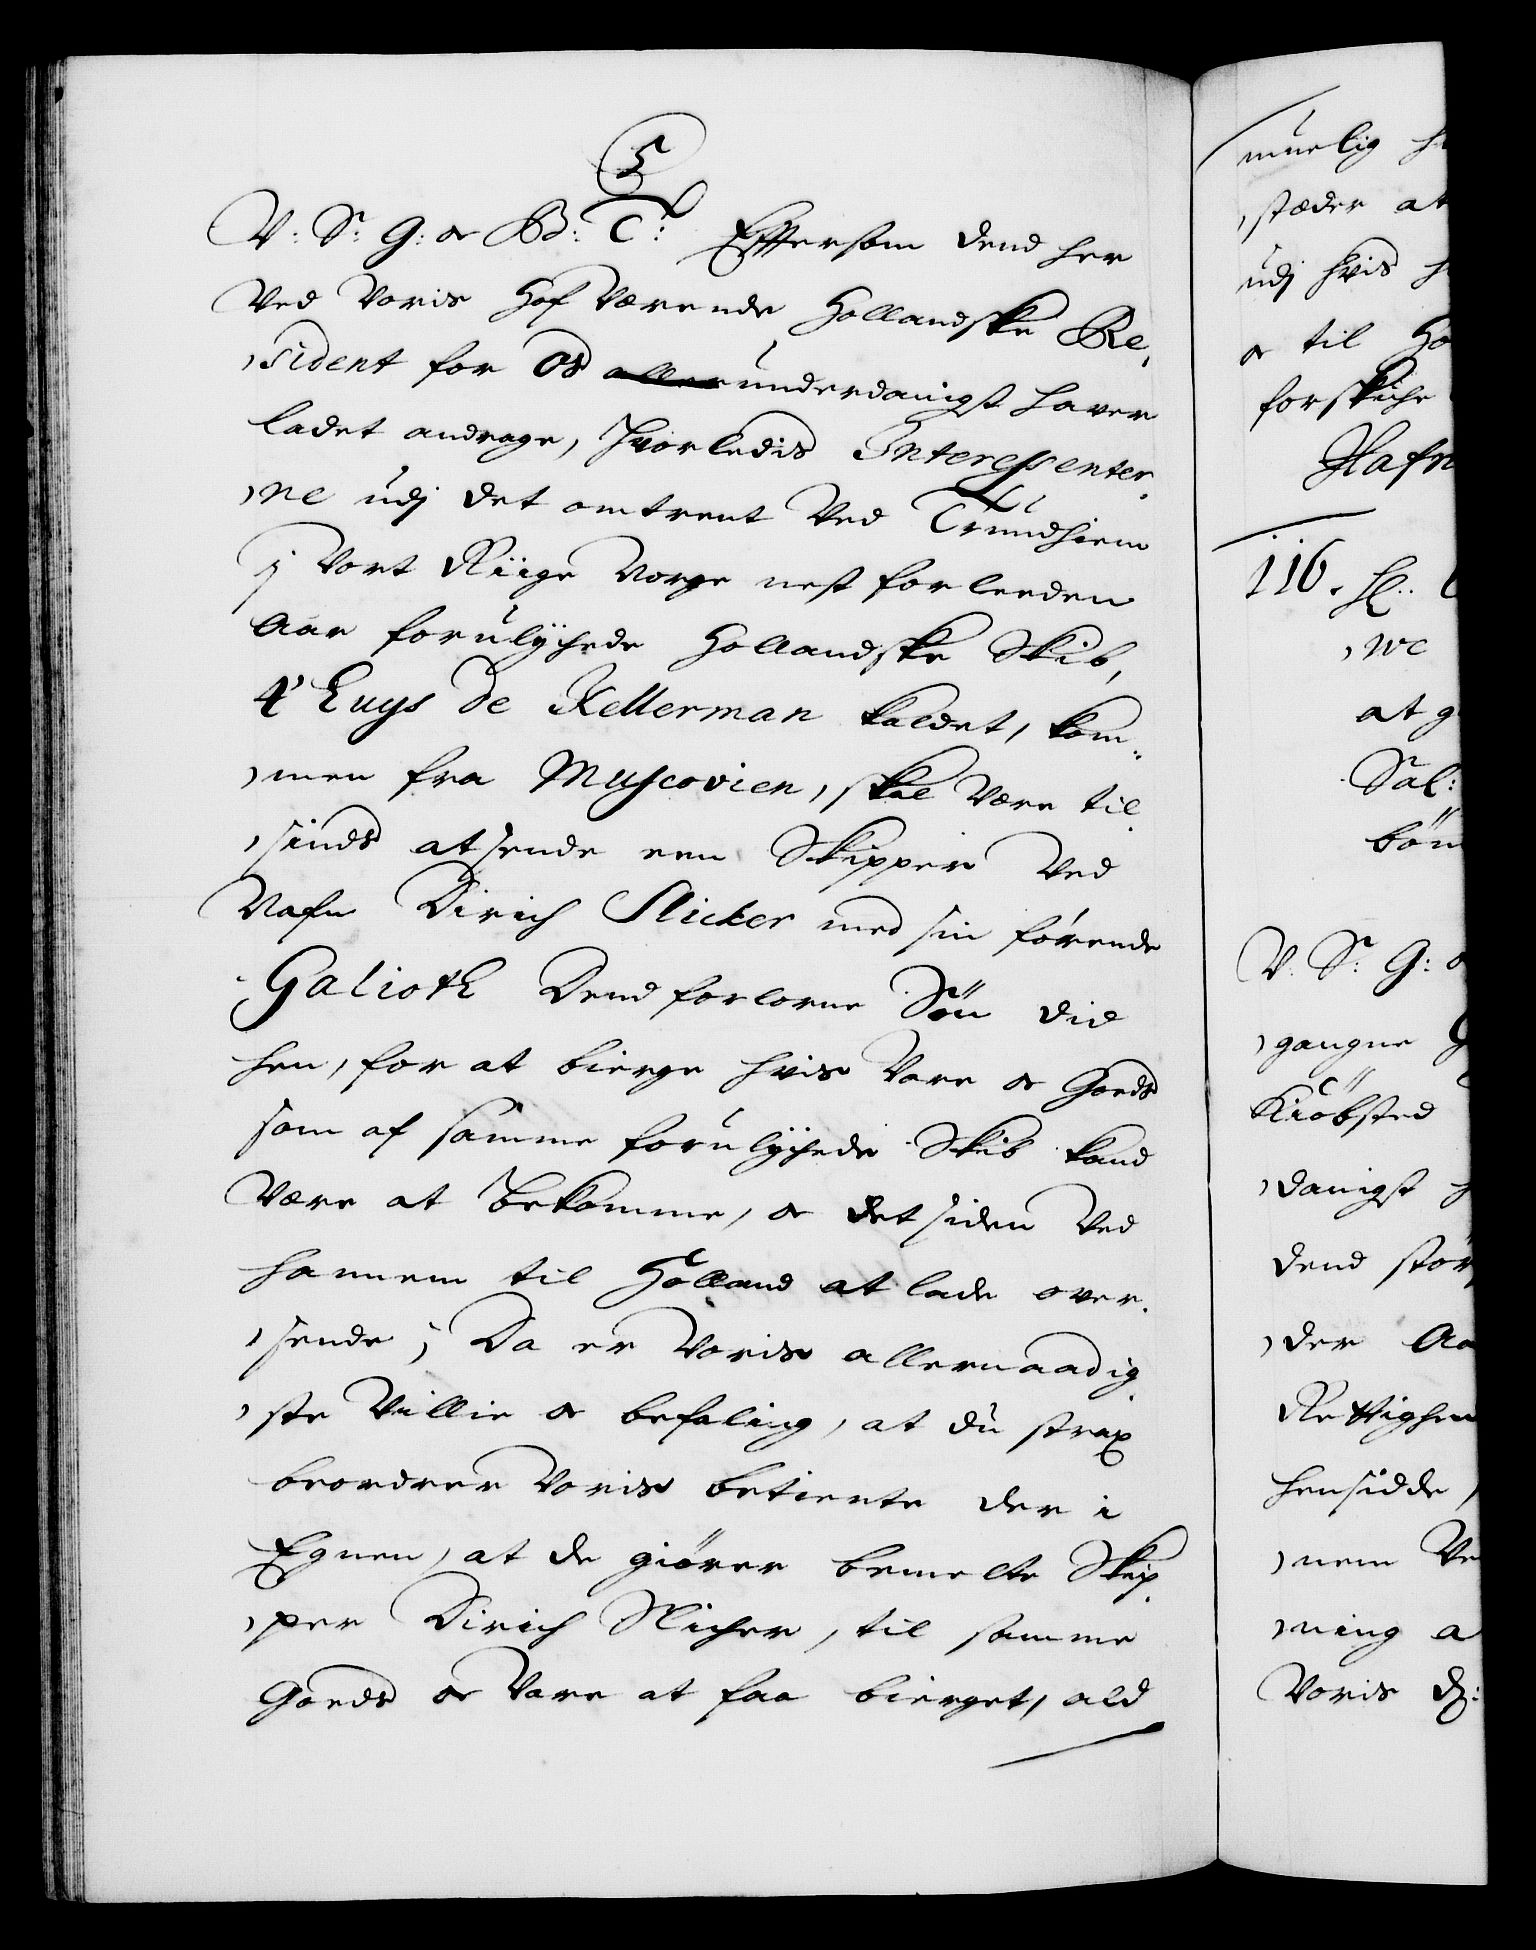 5
V: S: G: oc Bd: C: Effersom dend her
Ved Voris Hof Værende Hollandske Re,
,sident for Os allerunderdanigst haver
ladet andrage, hvorledis Interessenter,
,ne udj det omtrent Ved Trundhiem
j Vort Riige Norge nest forleeden
Aar forulÿchede Hollandske Skib,
t' Huys de Kellerman kaldet, kom,
,men fra Muscovien, skal Være til,
,sinds at sende een Skipper Ved
Nafn Dirich Slicker med sin førende
Galioth Dend forlorne Søn did
hen, for at bierge hvis Vare oc Goeds
som af samme forulÿchede Skib kand
Være at bekomme, oc det siden Ved
hannem til Holland at lade over,
,sende; Da er Voris allernaadig,
,ste Villie oc befaling, at du strax
beordrer Voris betiente der i
Egnen, at de giører bemelte Skip,
,per Dirich Slicher, til samme
Goeds oc Vare at faa bierget, ald
muelig
,steder at
udj hvis
oc til
Hafn
116.
,ne
at
Sal:
V. S: G:
,gangne
Kiøbsted
,danigst
dend stør
,der
Rettighe
hensidde,
,nem
,ning
Voris